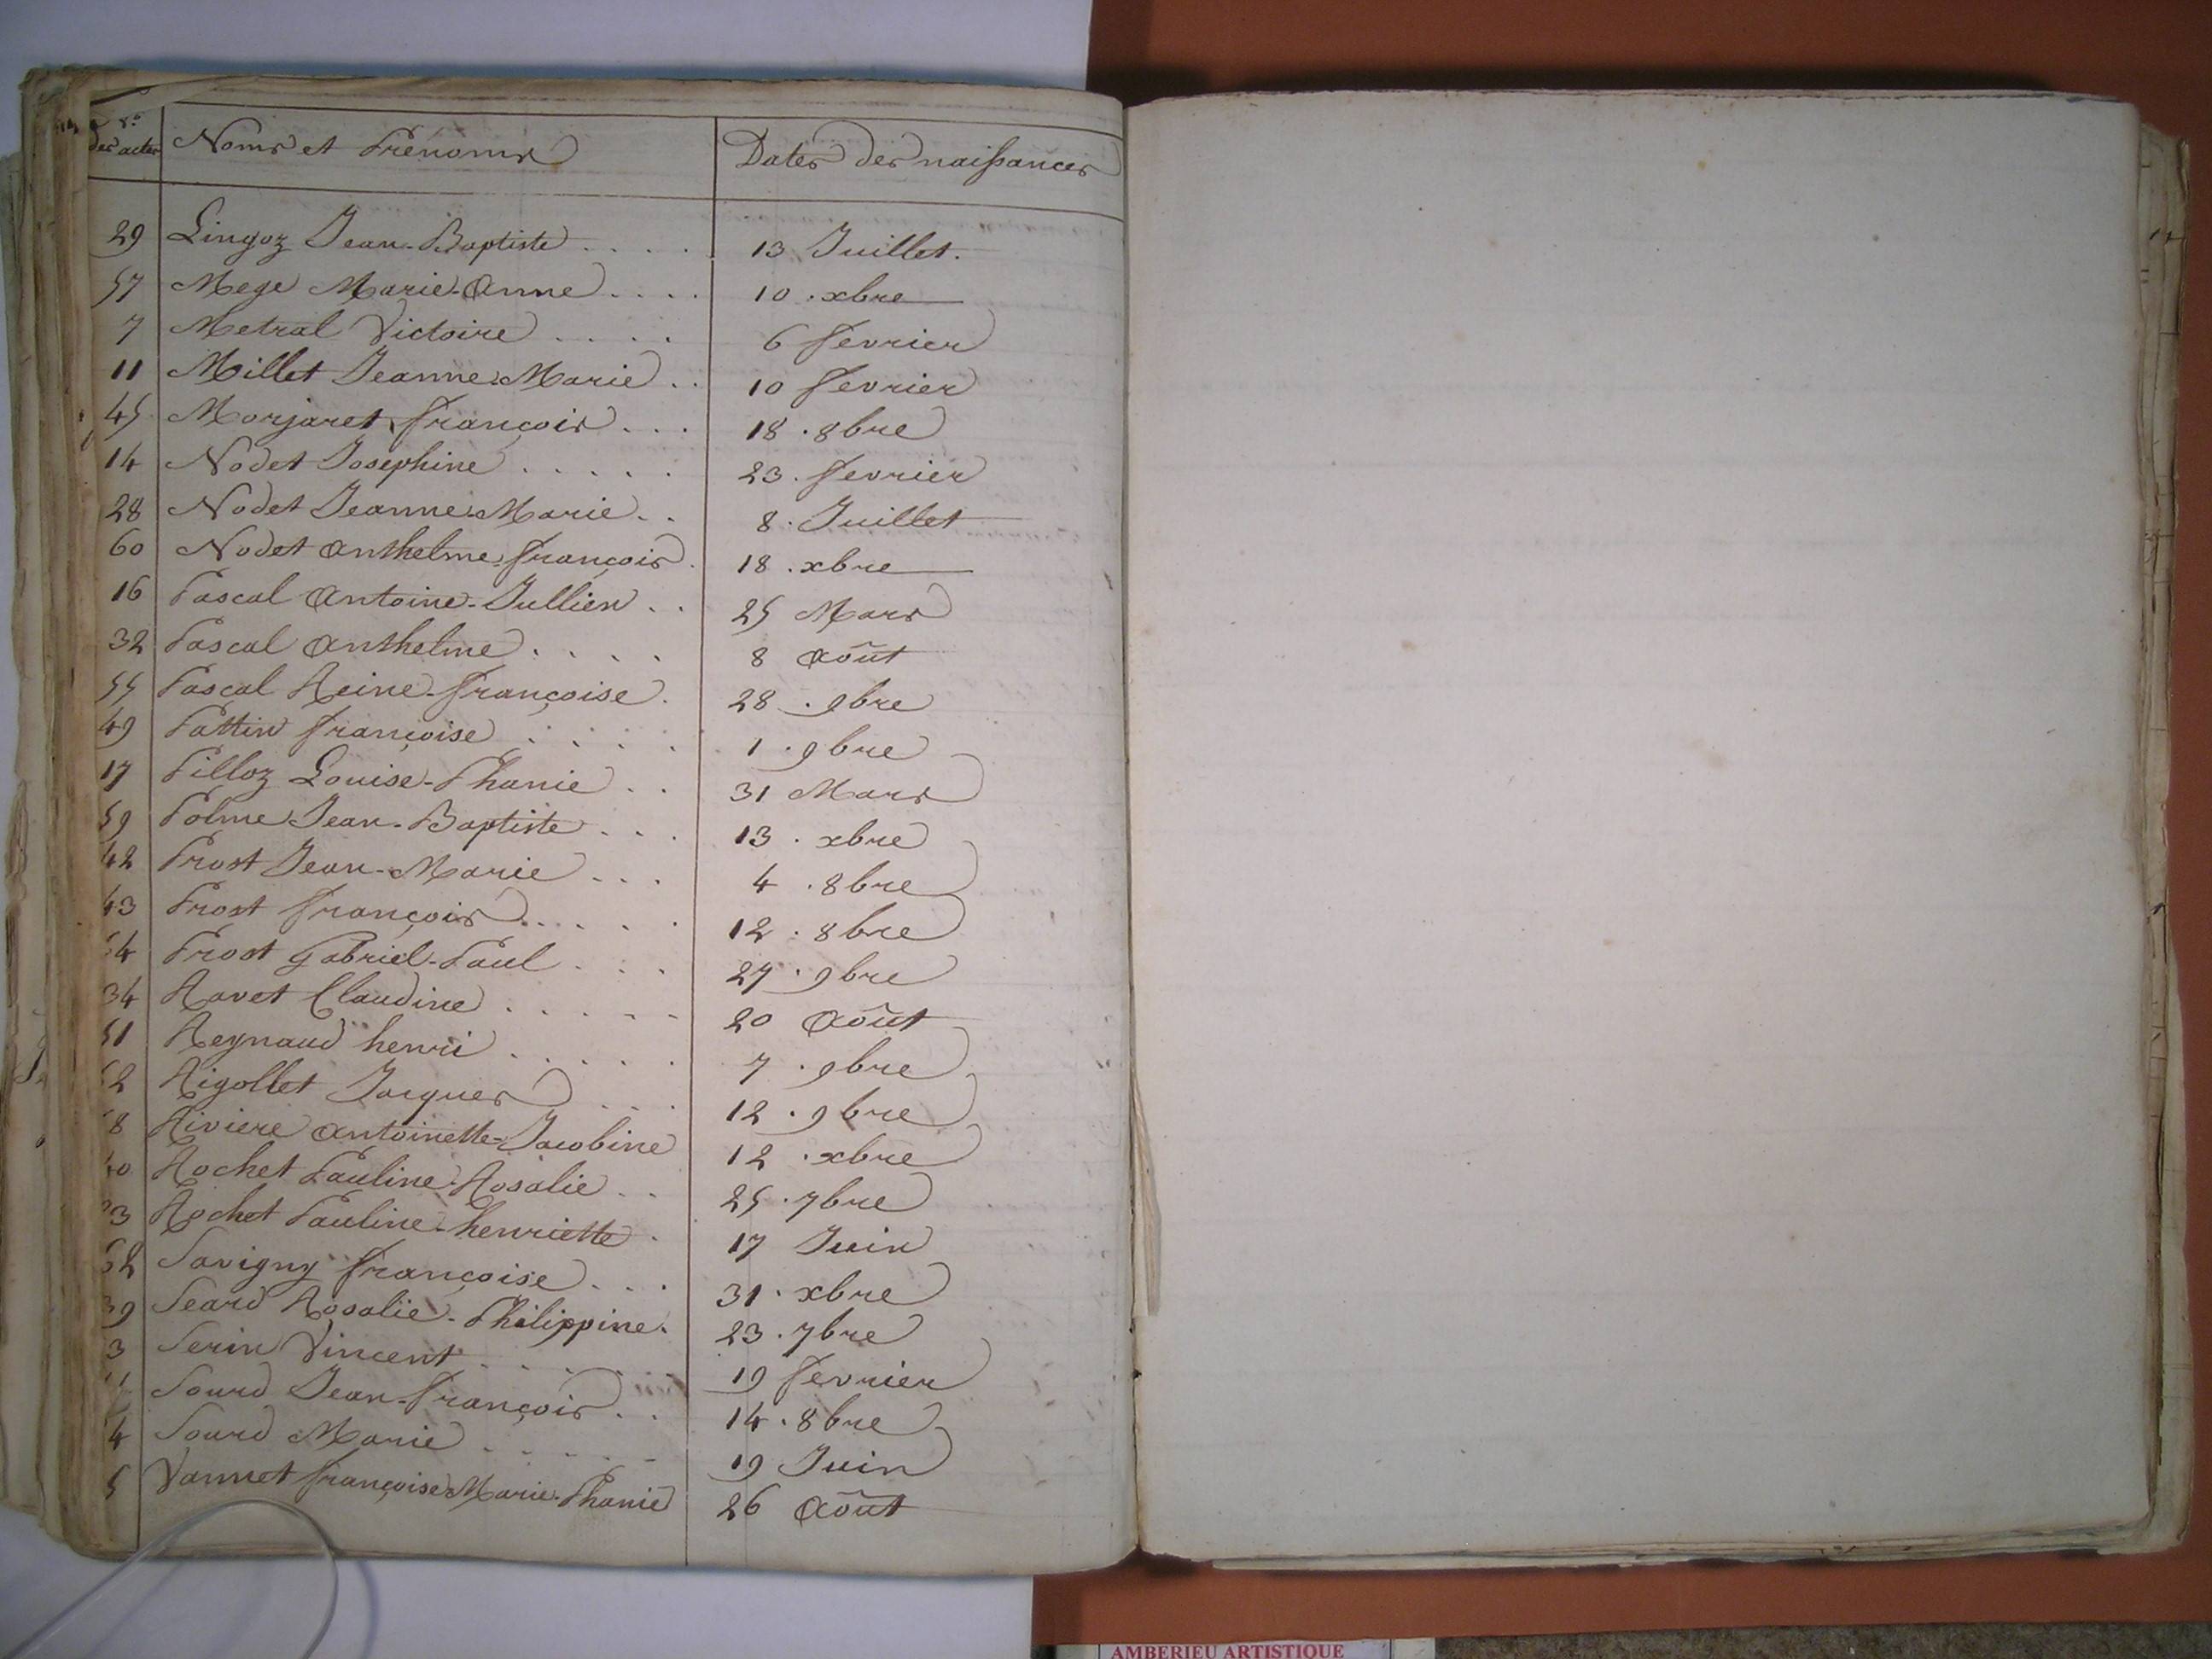 Nos des actes Noms et Prénoms Dates des naissances
29 Lingoz Jean-Baptiste.... 13 Juillet.
57 Mege Marie-Anne.... 10.xbre
7 Metral Victoire.... 6 fevrier
11 Millet Jeanne-Marie.. 10 fevrier
45 Morjaret françois... 18.8bre
14 Nodet Josephine..... 23.fevrier
28 Nodet Jeanne-Marie.. 8.Juillet
60 Nodet anthelme-françois. 18.xbre
16 Pascal antoine-Jullien.. 25 Mars
32 Pascal anthelme.... 8 août
55 Pascal Reine-françoise. 28.9bre
49 Pattin françoise.... 1.9bre
17 Pilloz Louise-Phanie.. 31 Mars
59 Polme Jean-Baptiste... 13.xbre
42 Prost Jean-Marie... 4.8bre
43 Prost françois..... 12.8bre
54 Prost gabriel-Paul... 27.9bre
34 Ravet Claudine..... 20 août
51 Reynaud henri..... 7.9bre
52 Rigollet Jacques... 12.9bre
8 Riviere antoinette-Jacobine 12.xbre
40 Rochet Pauline-Rosalie.. 25.7bre
23 Rochet Pauline-henriette. 17 Juin
62 Savigny françoise... 31.xbre
39 Seard Rosalie-Philippine. 23.7bre
3 Serin Vincent..... 19 fevrier
Sourd Jean-françois.. 14.8bre
4 Sourd Marie..... 19 Juin
5 Vannet françoise Marie-Phanie 26 août
AMBERIEU ARTISTIQUE